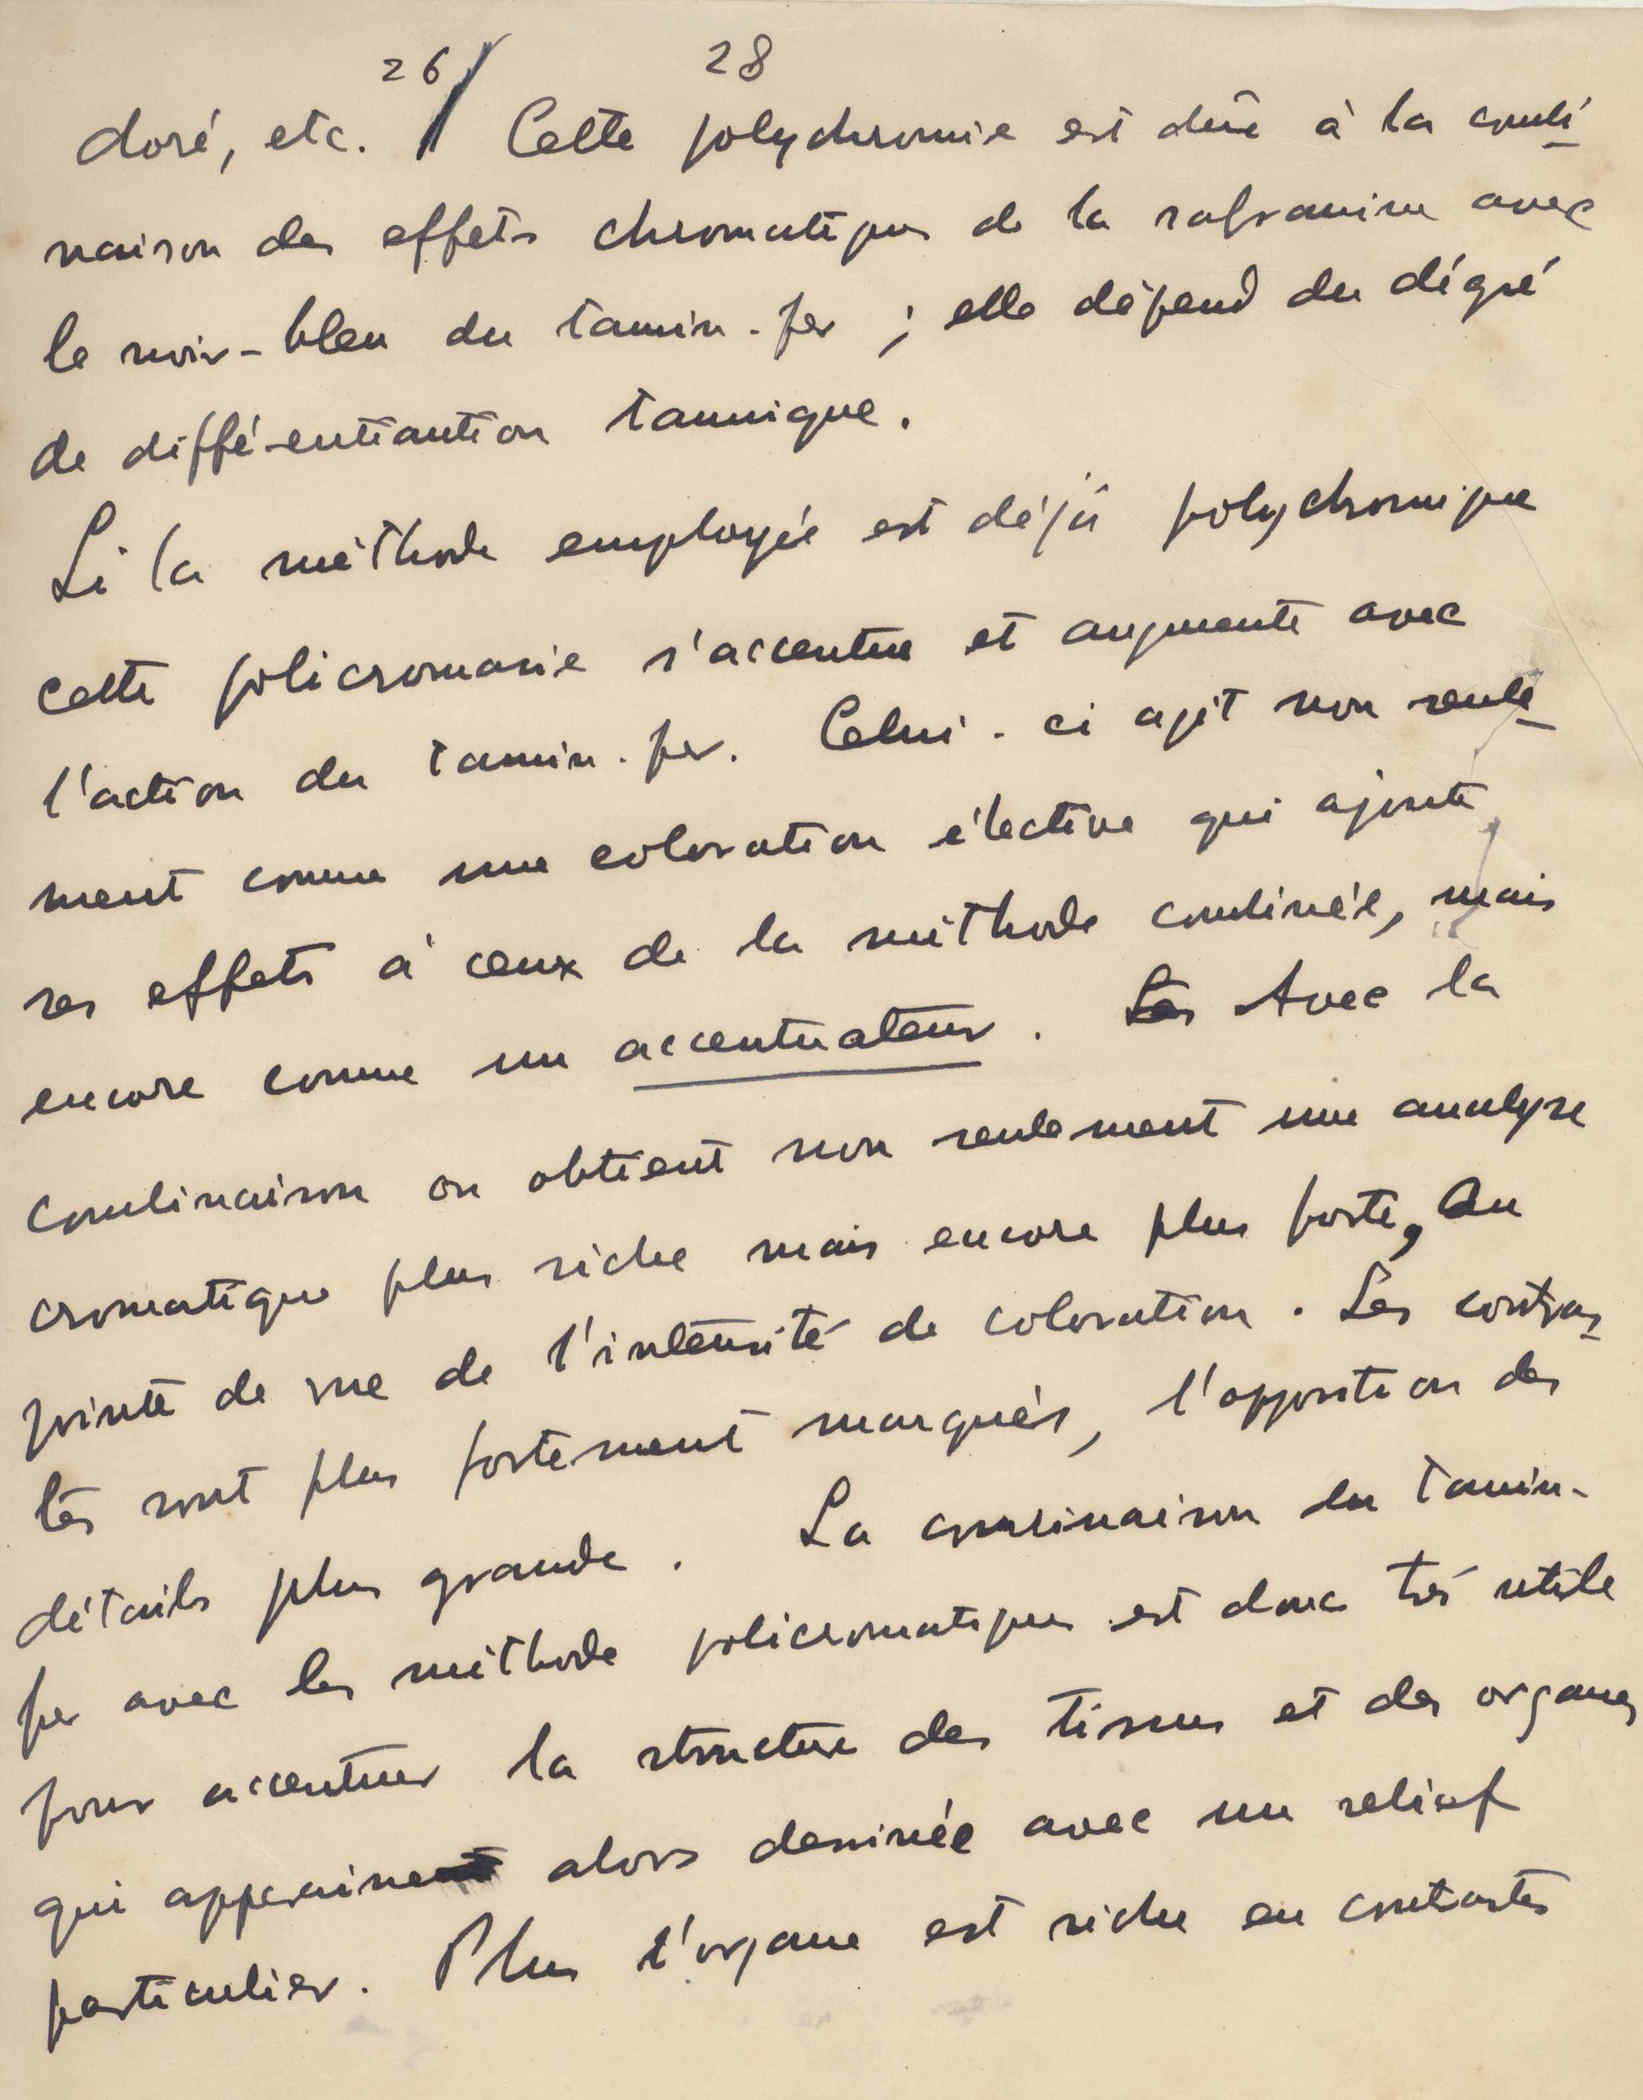 26 28
doré, etc. Cette polychromie est dûe à la combi-
naison des effets chromatiques de la safranine avec
le noir-bleu du tannin-fer ; elle dépend du dégré
de différentiantion tannique.
Si la méthode employée est déjà polychromique
cette policromasie s'accentue et augmente avec
l'action du tannin-fer. Celui-ci agit non seule-
ment comme une coloration élective qui ajoute
ses effets à ceux de la méthode combinée, mais
encore comme un accentuateur. Les Avec la
combinaison on obtient non seulement une analyse
cromatique plus riche mais encore plus forte, au
pointe de vue de l'intensité de coloration. Les contras-
tes sont plus fortement marqués, l'opposition des
détails plus grande. La combinaison du tannin-
fer avec les méthode policromatiques est donc trés utile
pour accentuer la structure des tissus et des organes
qui apparaine alors dessinée avec un relief
particulier. Plus l'organe est riche en contrastes